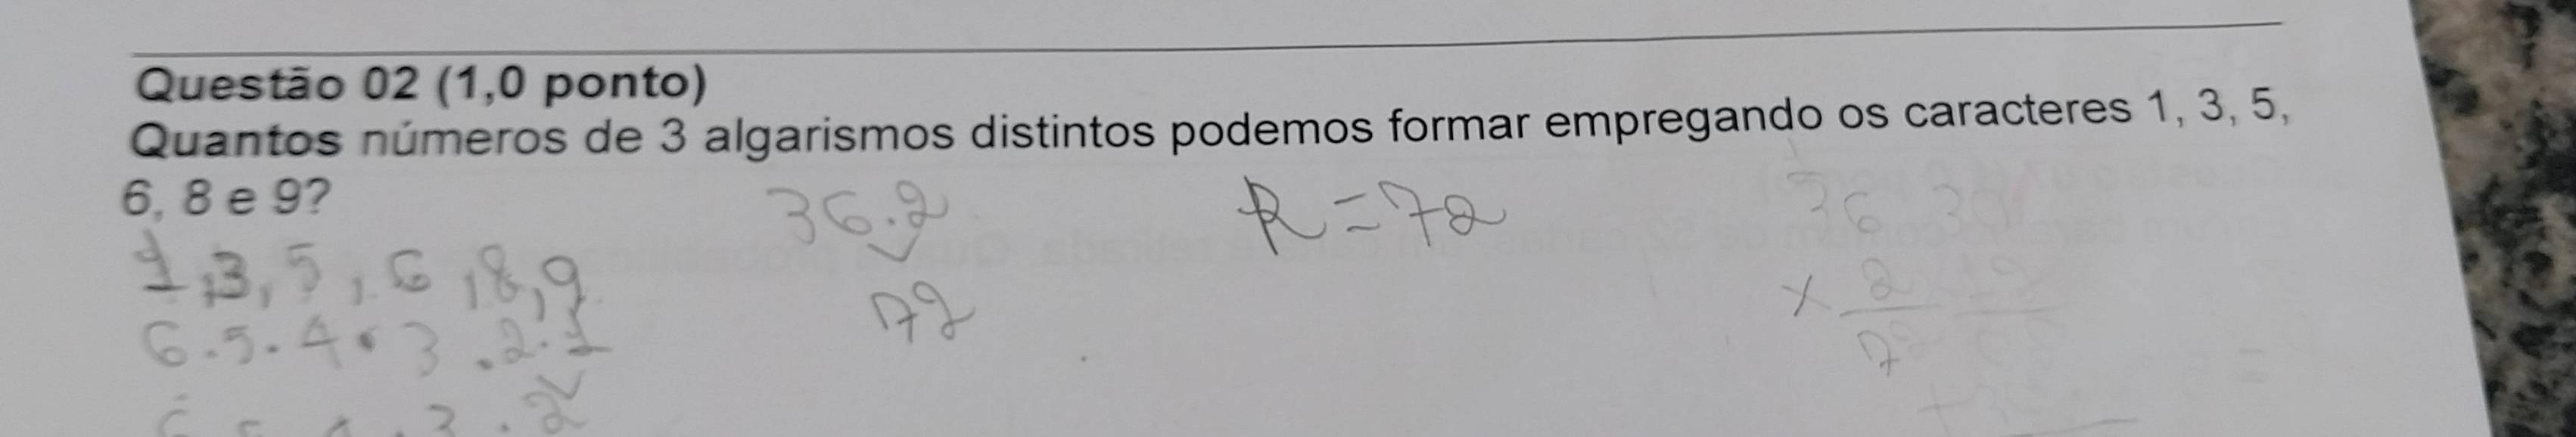 Questão 02 (1,0 ponto)
Quantos números de 3 algarismos distintos podemos formar empregando os caracteres 1, 3, 5,
6, 8 e 9?
36.2
72
R=72
1,3,5,6,8,9
6.5.4.3.2.1
36
x 2
72